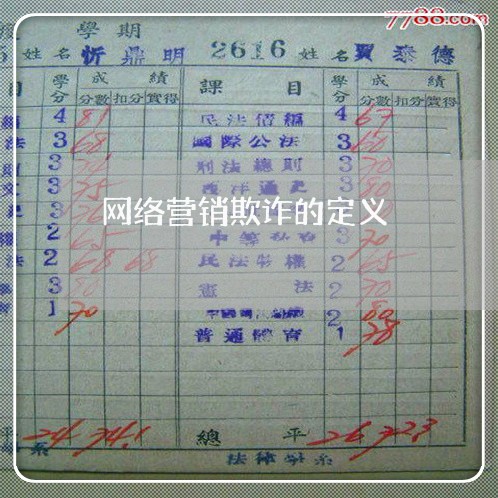 7788.com
學期
姓名 忻鼎明 2616 姓名 賈泰德
目 學分 成績 課目 學分 成績
分數 扣分 實得 分數 扣分 實得
4 81 民法債編 4 67
法 3 68 國際公法 3 60
3 刑法總則 3 70
3 75 西洋通史 3 80
3
网络营销欺诈的定义
2 65 3 70
法 2 68 68 民法物權 2 65
3 80 憲法 2 70
1 70 2 80
普通體育 1 78
平 24 74.1 總平 26 72.3
系 法律學系